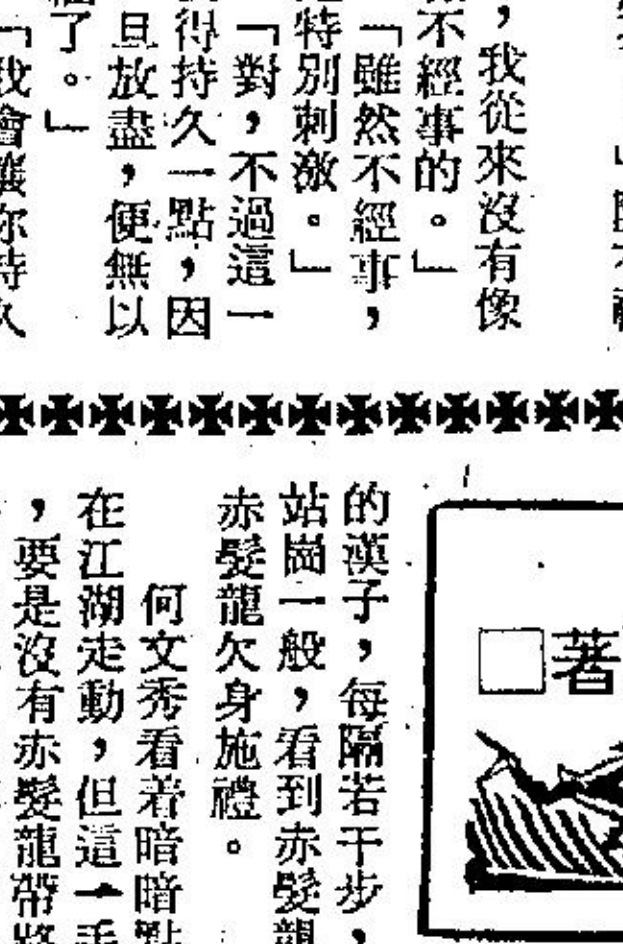 ，我從來沒有像
不經事的。」
「雖然不經事，
特別刺激。」
「對，不過這一
得持久一點，因
旦放盡，便無以
了。」
「我會讓你持久
著
的漢子，每隔若干步，
站崗一般，看到赤髮龍
赤髮龍欠身施禮。
何文秀看着暗暗點
在江湖走動，但這一手
，要是沒有赤髮龍帶路